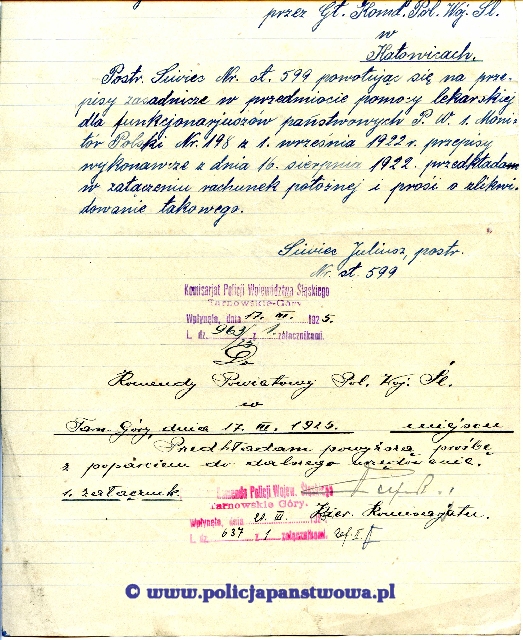 przez Gł. Komd. Pol. Woj. Śl.
w
Katowicach.
Postr. Siwiec Nr. st. 599 powołując się na prze-
pisy zasadnicze w przedmiocie pomocy lekarskiej
dla funkcjonarjuszów państwowych P. W. 1. Moni-
tór Polski Nr. 198 z 1. września 1922 r. przepisy
wykonawcze z dnia 16. sierpnia 1922. przedkładam
w załączeniu rachunek położnej i prosi o zlikwi-
dowanie takowego.
Siwiec Juliusz, postr.
Nr. st. 599
Komisarjat Policji Województwa Śląskiego
Tarnowskie-Góry
Wpłynęło, dnia 17. III. 1925.
L. dz. 963/25 z 1 załącznikami.
Do
Komendy Powiatowy Pol. Woj. Śl.
w
Tarn. Góry, dnia 17. III. 1925. miejscu
Przedkładam powyższą prośbę
z poparciem do dalnego
1. załącznik.
Komenda Policji Wojew. Śląskiego
Tarnowskie Góry.
Wpłynęło, dnia 20. III. 192
L. dz. 637 z 1 załącznikami.
Kier. Komisarjatu.
© www.policjapanstwowa.pl